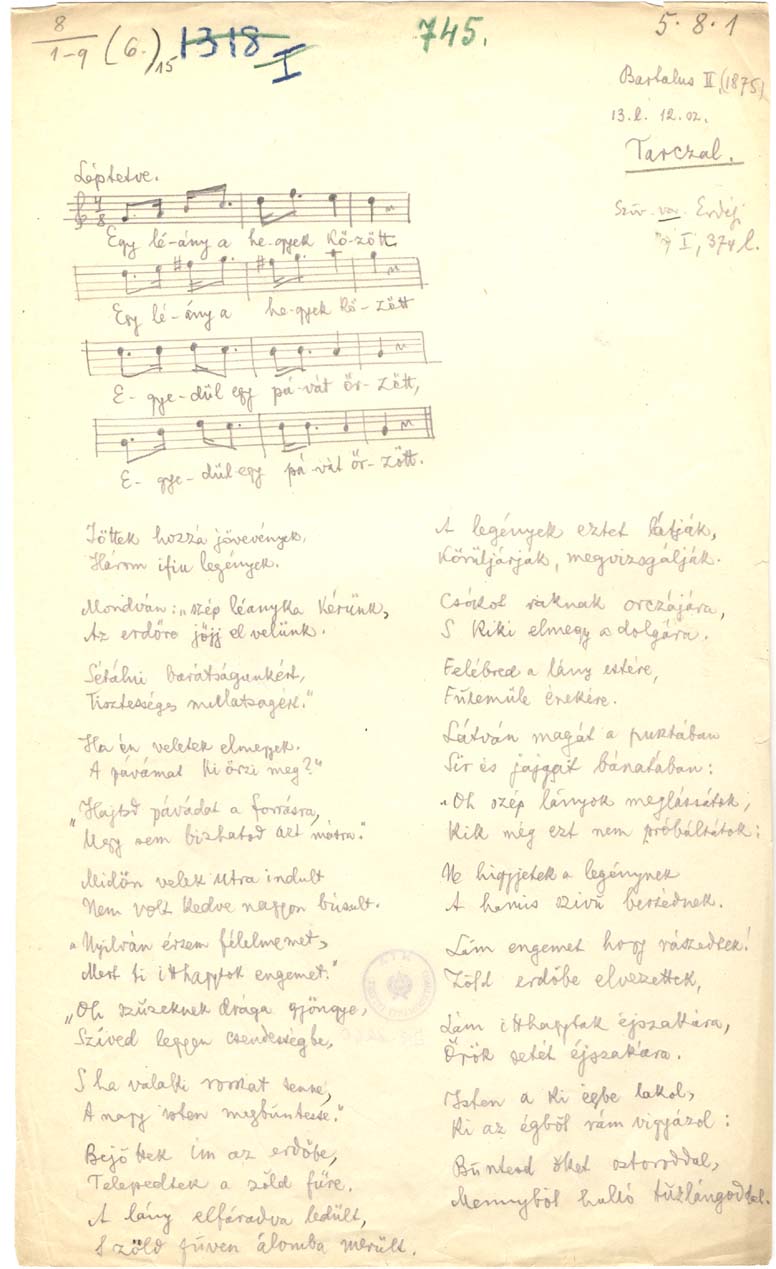 8
1-9
(6.)
15
1318
I
745.
5.8.1
Bartalus II, (1875)
13. l. 12. sz.
Tarczal.
Szöv. var. Erdélyi
I, 374 l.
Léptetve.
4
8
Egy lé-ány a he-gyek kö-zött
Egy lé-ány a he-gyek kö-zött
E-gye-dül egy pá-vát őr-zött,
E-gye-dül egy pá-vát őr-zött.
Jöttek hozzá jövevények,
Három ifiu legények.
Mondván: „szép léányka kérünk,
Az erdőre jőjj el velünk.
Sétálni barátságunkért,
Tisztességes mullatságért."
Ha én veletek elmegyek.
A pávámat ki őrzi meg?"
„Hajtsd pávádat a forrásra,
Ugy sem bizhatod azt másra."
Midőn velek utra indult
Nem volt kedve nagyon búsult.
„Nyilván érzem félelmemet,
Mert ti itthagytok engemet."
„Oh szűzeknek drága gyöngye,
Szíved legyen csendességbe,
S ha valaki rosszat tenne,
A nagy isten megbüntesse."
Bejöttek ím az erdőbe,
Telepedtek a zöld fűre.
A lány elfáradva ledült,
S zöld füven álomba merült.
A legények eztet látják,
Körüljárják, megvizsgálják.
Csókot raknak orczájára,
S kiki elmegy a dolgára.
Felébred a lány estére,
Fülemüle énekére.
Látván magát a pusztában
Sir és jajgat bánatában:
„Oh szép lányok meglássátok,
Kik még ezt nem próbáltátok:
Ne higyjetek a legénynek
A hamis szivű beszédnek.
Lám engemet hogy rászedtek!
Zöld erdőbe elvezettek,
Lám itthagytak éjszakára,
Örök setét éjszakára.
Isten a ki égbe lakol,
Ki az égből rám vigyázol:
Büntesd őket ostoroddal,
Mennyből hulló tűzlángoddal.